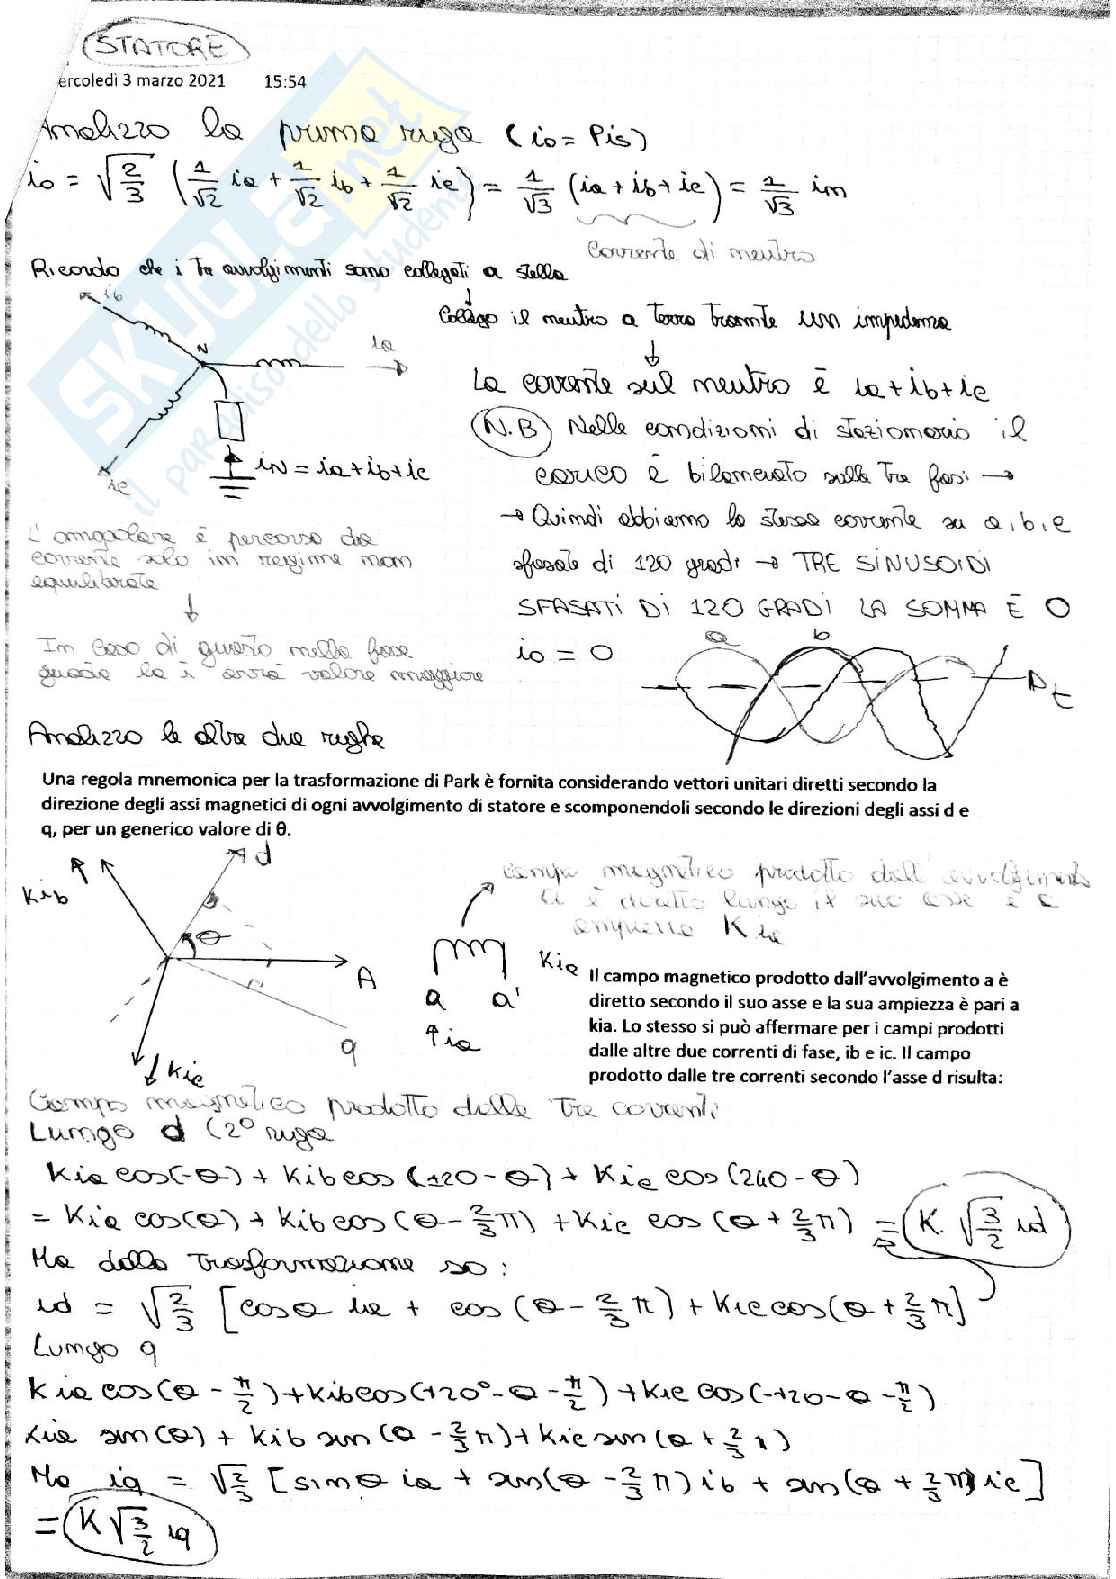 STATORE
ercoledì 3 marzo 2021 15:54
Analizzo la prima riga (io = Pis)
io = √2/3 (1/√2 ia + 1/√2 ib + 1/√2 ic) = 1/√3 (ia + ib + ic) = 1/√3 im
Corrente di neutro
Ricordo che i tre avvolgimenti sono collegati a stella
Collego il neutro a terra tramite un impedenza
ib
ia
N
ic
iN = ia + ib + ic
La corrente sul neutro è ia + ib + ic
N.B Nelle condizioni di stazionario il
carico è bilanciato sulle tre fasi →
→ Quindi abbiamo la stessa corrente su a, b, c
sfasate di 120 gradi → TRE SINUSOIDI
SFASATI DI 120 GRADI LA SOMMA È 0
io = 0
a b
t
è percorso da
corrente solo in regime non
equilibrato
↓
In caso di guasto nella fase
guasta la i avrà valore maggiore
Analizzo le altre due righe
Una regola mnemonica per la trasformazione di Park è fornita considerando vettori unitari diretti secondo la
direzione degli assi magnetici di ogni avvolgimento di statore e scomponendoli secondo le direzioni degli assi d e
q, per un generico valore di θ.
Kib
d
θ
A
q
Kic
Campo magnetico prodotto dall'avvolgimento
a è diretto lungo il suo asse e
ampiezza K ia
Kia
a a'
↑ia
Il campo magnetico prodotto dall'avvolgimento a è
diretto secondo il suo asse e la sua ampiezza è pari a
kia. Lo stesso si può affermare per i campi prodotti
dalle altre due correnti di fase, ib e ic. Il campo
prodotto dalle tre correnti secondo l'asse d risulta:
Campo magnetico prodotto dalle tre correnti
Lungo d (2° riga
Kia cos(-θ) + Kib cos(120 - θ) + Kic cos(240 - θ)
= Kia cos(θ) + Kib cos(θ - 2/3 π) + Kic cos(θ + 2/3 π) = K √3/2 id
Ma dalla trasformazione so:
id = √2/3 [cosθ ia + cos(θ - 2/3 π) + Kic cos(θ + 2/3 π]
Lungo q
Kia cos(θ - π/2) + Kib cos(+120° - θ - π/2) + Kic cos(-120 - θ - π/2)
Kia sin(θ) + Kib sin(θ - 2/3 π) + Kic sin(θ + 2/3 π)
Ma iq = √2/3 [sinθ ia + sin(θ - 2/3 π) ib + sin(θ + 2/3 π) ic]
= K √3/2 iq
SKUOLA.net
il paradiso dello studente